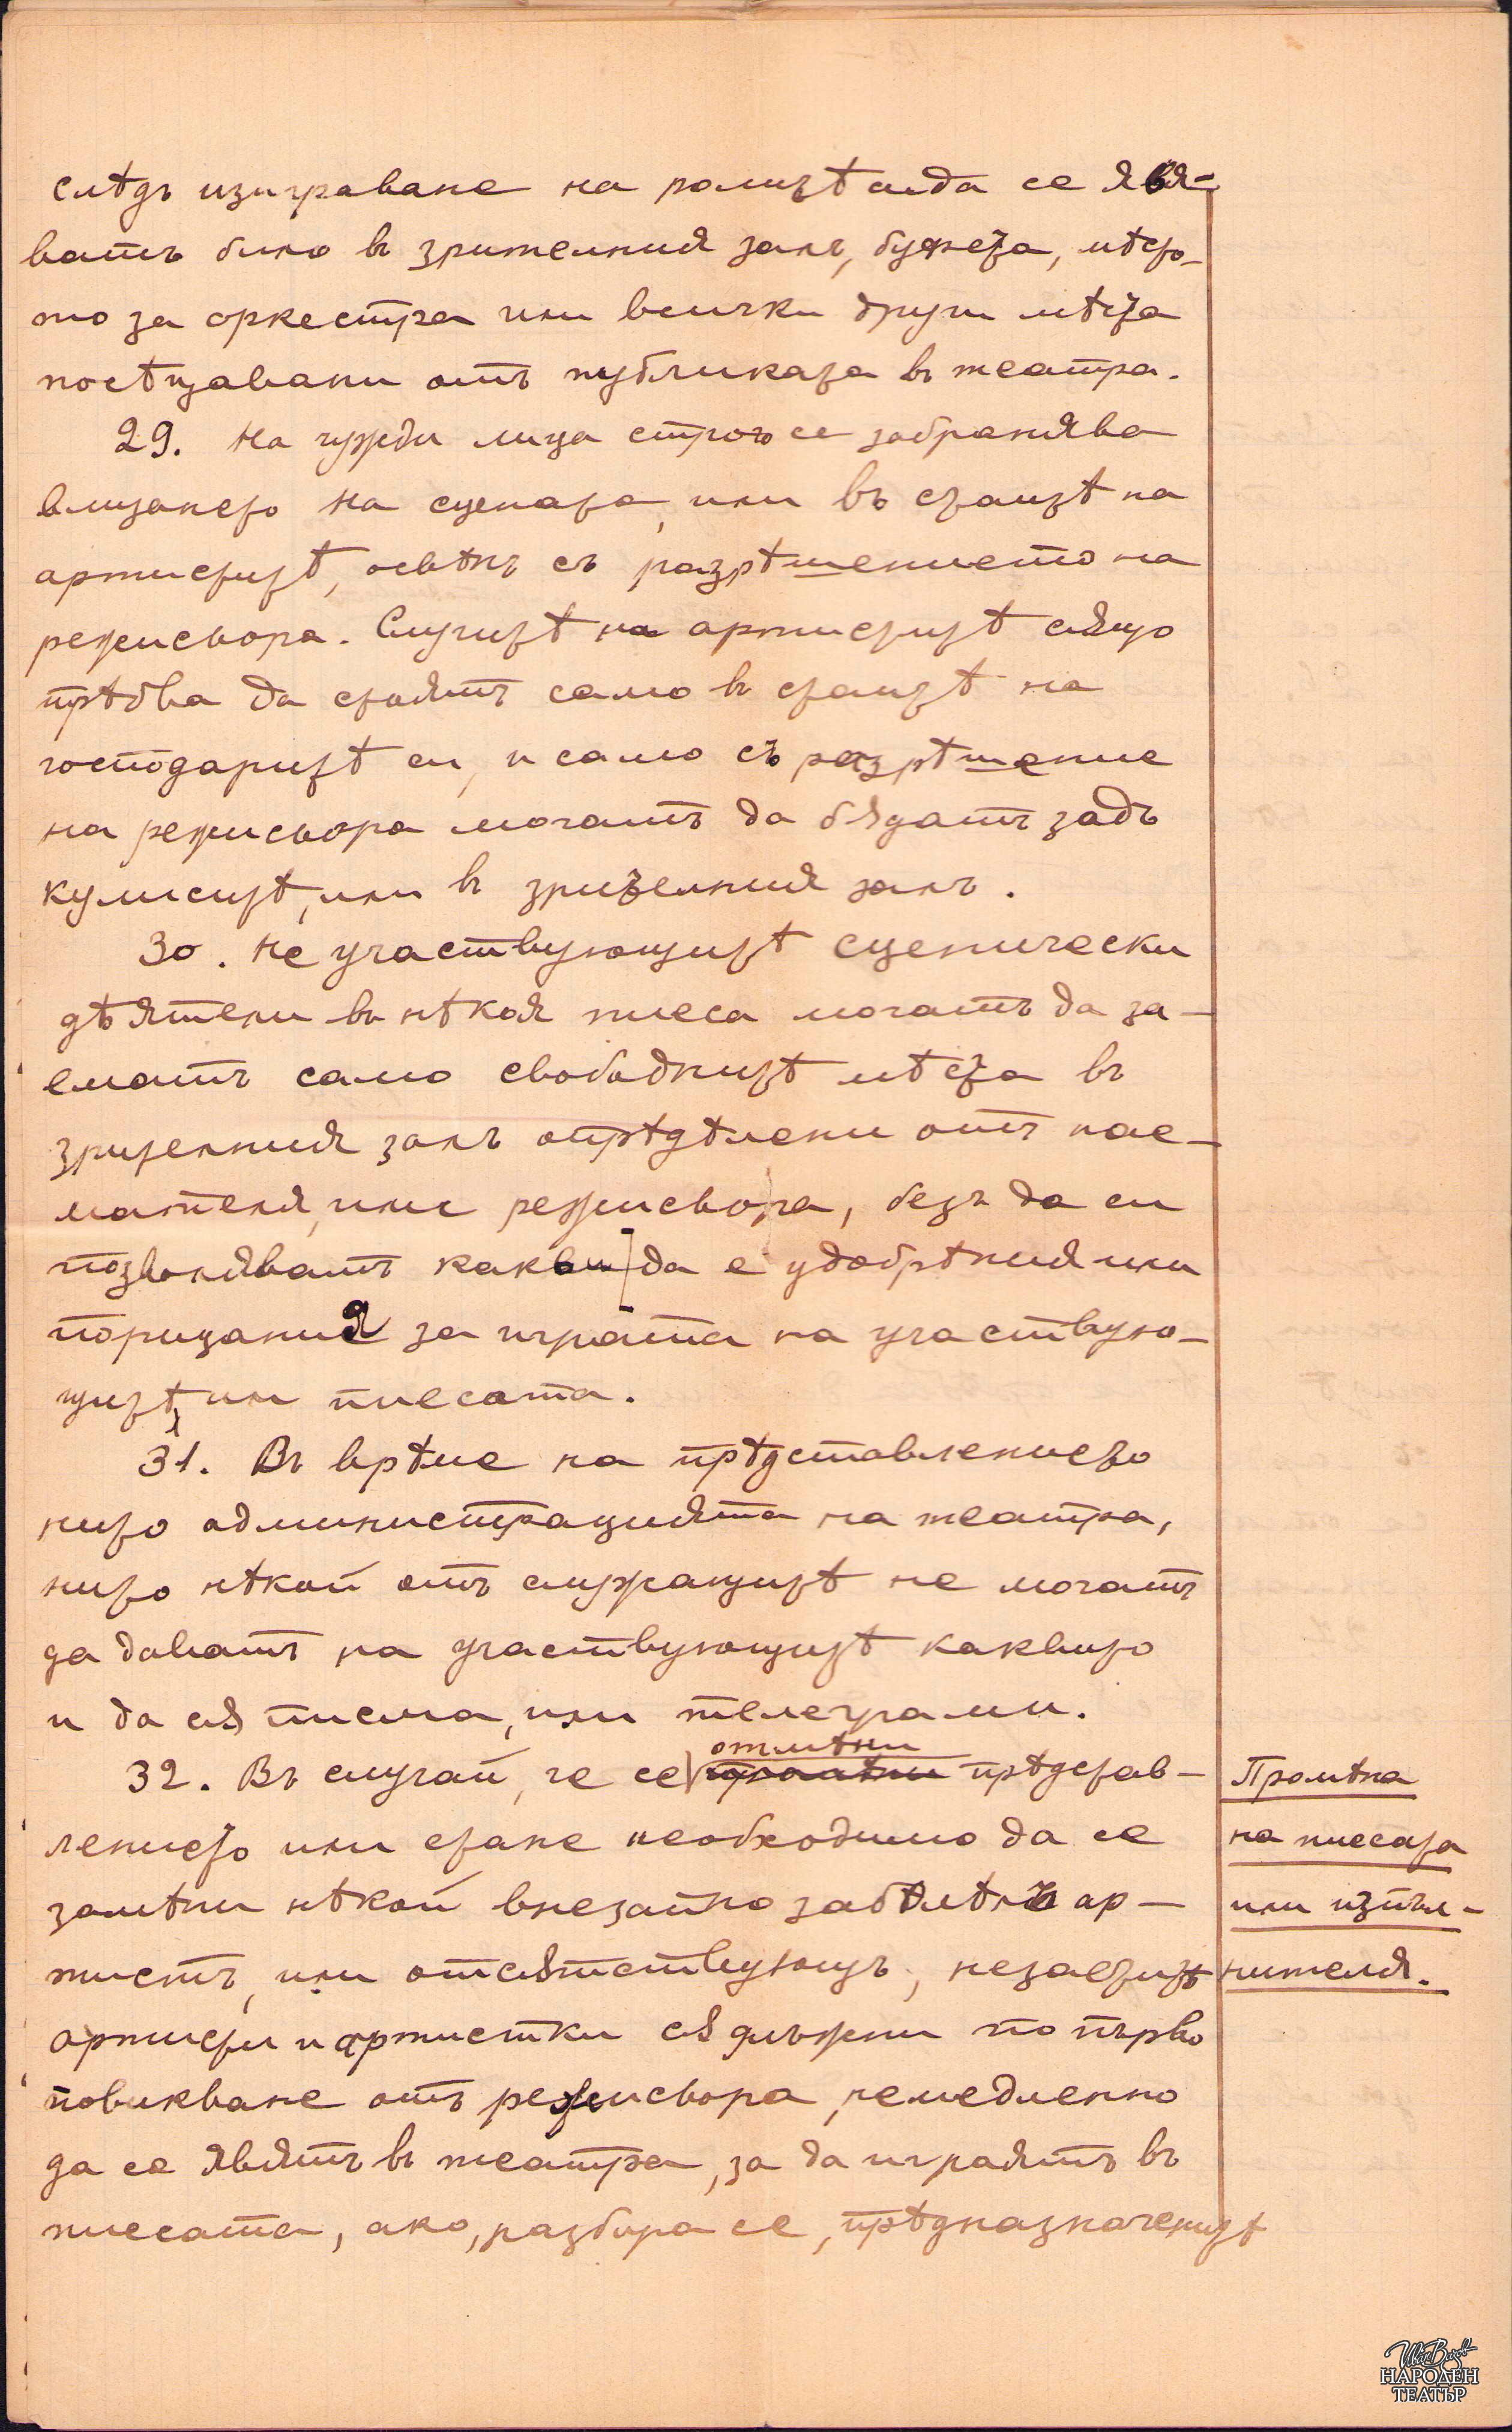 слѣдъ изиграване на ролитѣ си да се явя-
ватъ било въ зрителния залъ, бюфета, мѣсто-
то за оркестра или всички други мѣста
посѣщавани отъ публиката въ театра.
29. На чужди лица строго се забранява
влизането на сцената, или въ стаитѣ на
артиститѣ, освѣнъ съ разрѣшението на
режисьора. Слугитѣ на артиститѣ сѫщо
трѣбва да стоятъ само въ стаитѣ на
господаритѣ си, и само съ разрѣшение
на режисьора могатъ да бѫдатъ задъ
кулиситѣ, или въ зрителния залъ.
30. Не участвующитѣ сценически
дѣятели въ нѣкоя пиеса могатъ да за-
ематъ само свободнитѣ мѣста въ
зрителния залъ опрѣдѣлени отъ нае-
мателя, или режисьора, безъ да си
позволяватъ какви да е удобрѣния или
порицания за играта на участвую-
щитѣ, или пиесата.
31. Въ врѣме на прѣдставлението
нито администрацията на театра,
нито нѣкой отъ служащитѣ не могатъ
да даватъ на участвующитѣ каквито
и да сѫ писма, или телеграми.
32. Въ случай, че се отмѣни прѣдстав-
лението или стане необходимо да се
замѣни нѣкой внезапно заболѣлъ ар-
тистъ, или отсѫтствующъ, незаетитѣ
артисти и артистки сѫ длъжни по първо
повикване отъ режисьора, немедленно
да се явятъ въ театра, за да играятъ въ
пиесата, ако, разбира се, прѣдназначенитѣ
Промѣна
на пиесата
или изпъл-
нителя.
Иван Вазов
НАРОДЕН
ТЕАТЪР